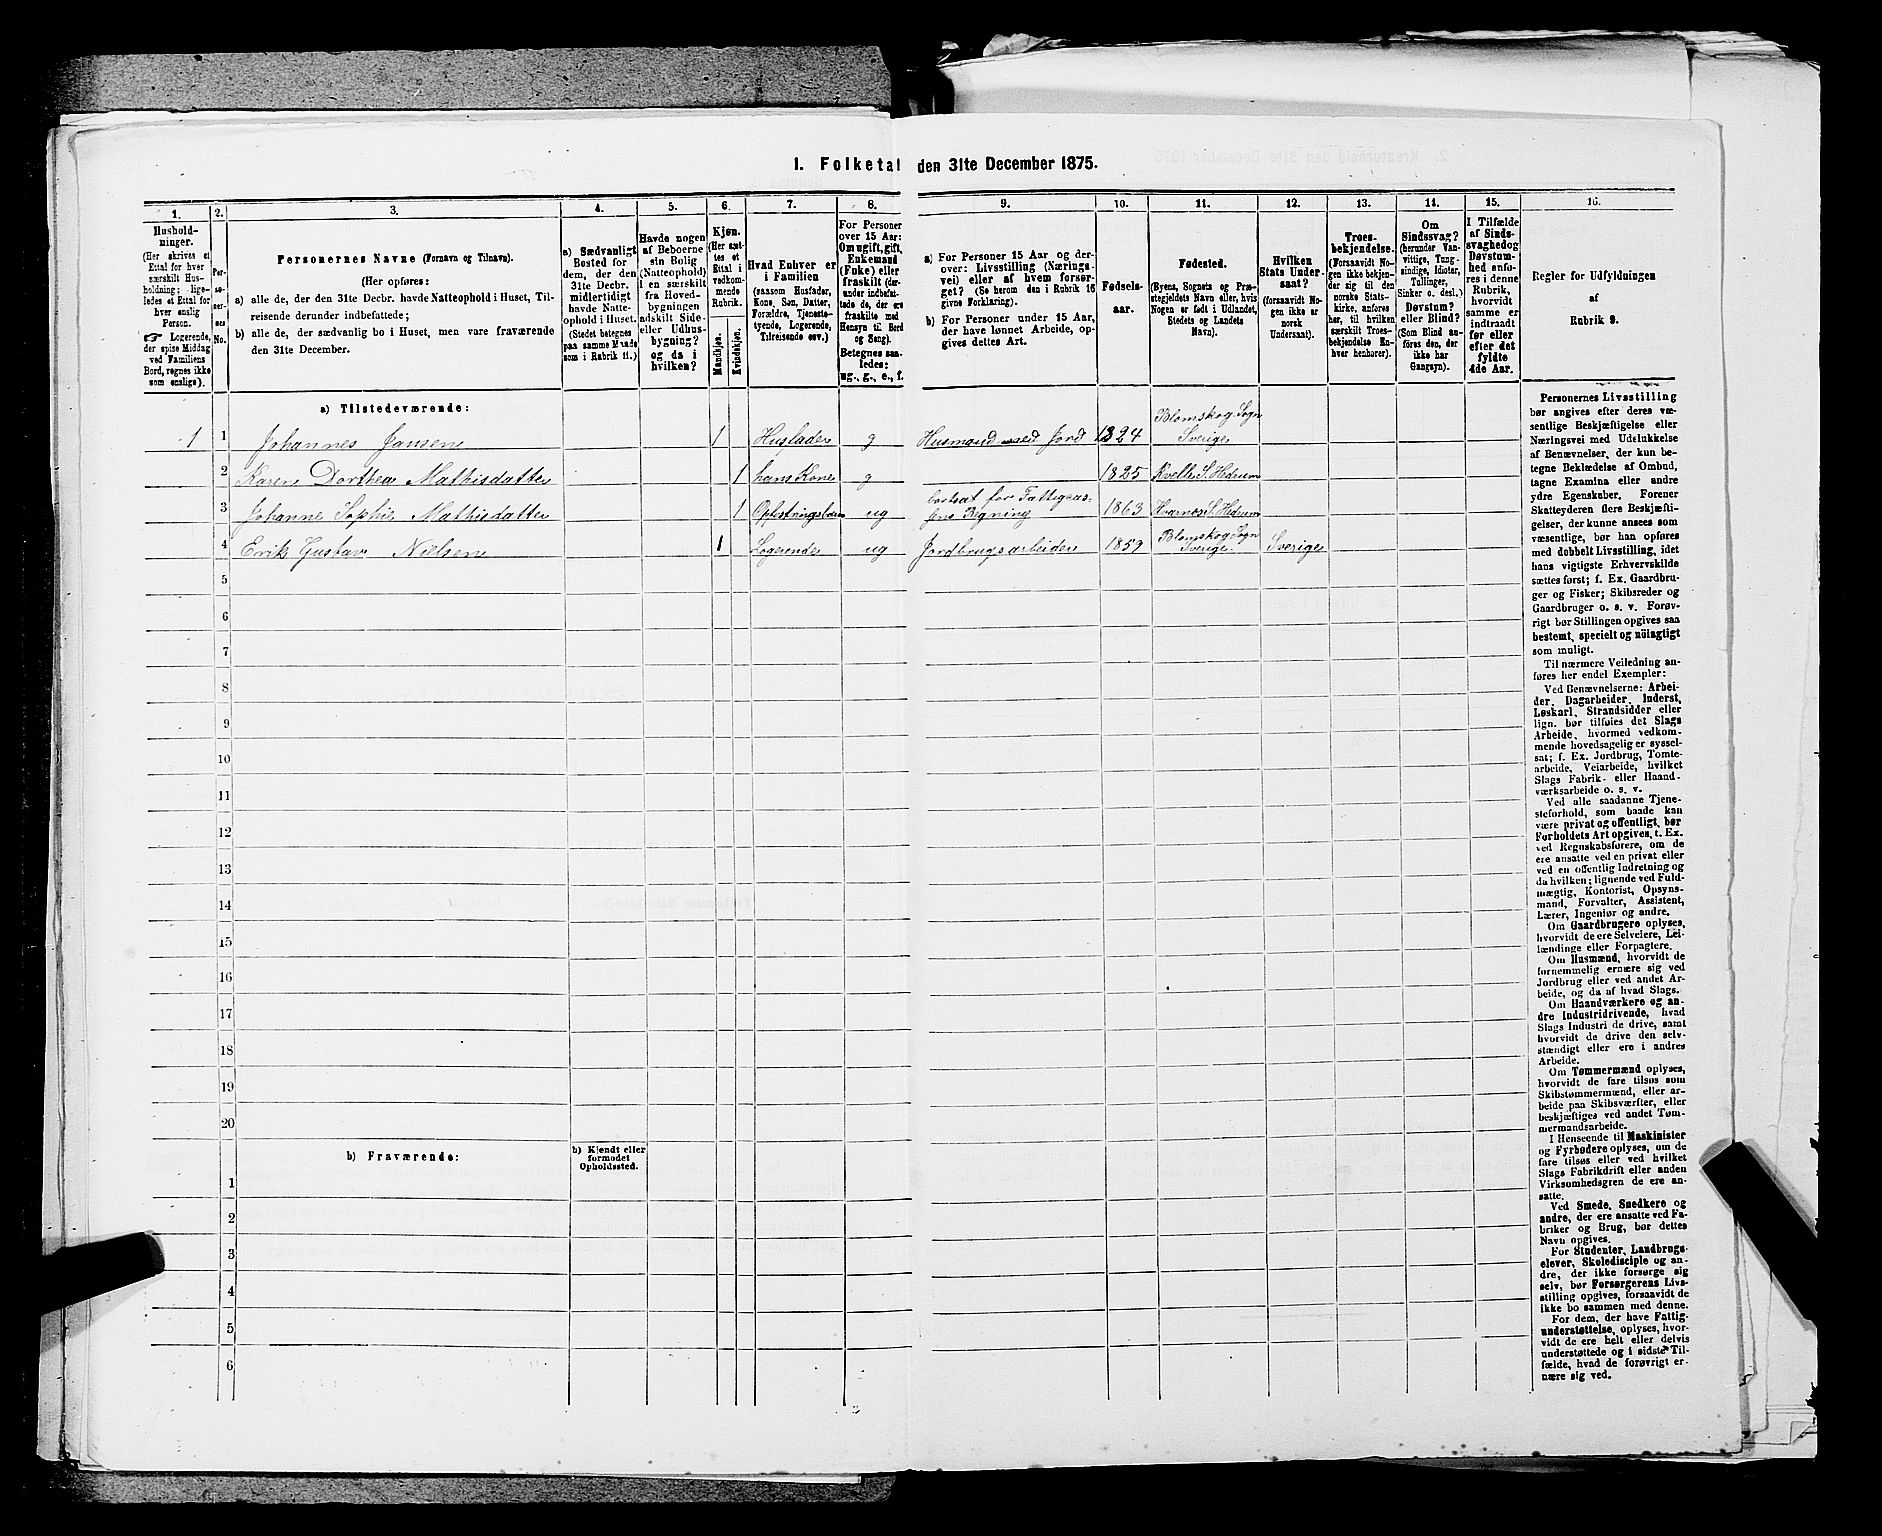 1. Folketal den 31te December 1875.
1.
2.
3.
4.
5.
6.
7.
8.
9.
10.
11.
12.
13.
14.
15.
16.
Hushold-
ninger.
(Her skrives et
Ettal for hver
særskilt Hus-
holdning; lige-
ledes et Ettal for
hver enslig
Person.
☞ Logerende,
der spise Middag
ved Familiens
Bord, regnes ikke
som enslige).
Per-
so-
ner-
nes
No.
Personernes Navne (Fornavn og Tilnavn).
(Her opføres:
a) alle de, der den 31te Decbr. havde Natteophold i Huset, Til-
reisende derunder indbefattede;
b) alle de, der sædvanlig bo i Huset, men vare fraværende
den 31te December.
a) Sædvanligt
Bosted for
dem, der den
31te Decbr.
midlertidigt
havde Natte-
ophold i Huset.
(Stedet betegnes
paa samme Maade
som i Rubrik 11.)
Havde nogen
af Beboerne
sin Bolig
(Natteophold)
i en særskilt
fra Hoved-
bygningen
adskilt Side-
eller Udhus-
bygning?
og da i
hvilken?
Kjøn.
(Her sæt-
tes et
Ettal i
vedkom-
mende
Rubrik.
Mandkjøn.
Kvindekjøn.
Hvad Enhver er
i Familien
(saasom Husfader,
Kone, Søn, Datter,
Forældre, Tjeneste-
tyende, Logerende,
Tilreisende osv.)
For Personer
over 15 Aar:
Om ugift, gift,
Enkemand
(Enke) eller
fraskilt (der-
under indbefat-
tede de, der ere
fraskilte med
Hensyn til Bord
og Seng).
Betegnes saa-
ledes:
ug., g., e., f.
a) For Personer 15 Aar og der-
over: Livsstilling (Nærings-
vei) eller af hvem forsør-
get? (Se herom den i Rubrik 16
givne Forklaring).
b) For Personer under 15 Aar,
der have lønnet Arbeide, op-
gives dettes Art.
Fødsels-
aar.
Fødested.
(Byens, Sognets og Præ-
stegjeldets Navn eller, hvis
Nogen er født i Udlandet,
Stedets og Landets
Navn).
Hvilken
Stats Under-
saat?
(forsaavidt No-
gen ikke er
norsk
Undersaat).
Troes-
bekjendelse.
(Forsaavidt No-
gen ikke bekjen-
der sig til den
norske Stats-
kirke, anføres
her, til hvilken
særskilt Troes-
bekjendelse En-
hver henhører).
Om
Sindssvag?
(herunder Van-
vittige, Tung-
sindige, Idioter,
Tullinger,
Sinker o. desl.)
Døvstum?
eller Blind?
(Som Blind an-
føres den, der
ikke har
Gangsyn).
I Tilfælde
af Sinds-
svaghed og
Døvstum-
hed anfø-
res i denne
Rubrik,
hvorvidt
samme er
indtraadt
før eller
efter det
fyldte
4de Aar.
Regler for Udfyldningen
af
Rubrik 9.
a) Tilstedeværende:
1 1 Johannes Jansen 1 Husfader g Husmand med Jord 1824 Blomskog Sogn
Sverige
2 Karen Dorthea Mathisdatter 1 hans Kone g 1825 Kvelle S. Hedrum
3 Johanne Sophie Mathisdatter 1 Opfostringsbarn ug bortsat for Fattigcas-
sens Regning 1863 Hvarnes S. Hedrum
4 Erik Gustav Nielsen 1 Logerende ug Jordbrugsarbeider 1859 Blomskog Sogn
Sverige. Sverige
5
6
7
8
9
10
11
12
13
14
15
16
17
18
19
20
b) Fraværende:
b) Kjendt eller
formodet
Opholdssted.
1
2
3
4
5
6
Personernes Livsstilling
bør angives efter deres væ-
sentlige Beskjæftigelse eller
Næringsvei med Udelukkelse
af Benævnelser, der kun be-
tegne Beklædelse af Ombud,
tagne Examina eller andre
ydre Egenskaber. Forener
Skatteyderen flere Beskjæfti-
gelser, der kunne ansees som
væsentlige, bør han opføres
med dobbelt Livsstilling, idet
hans vigtigste Erhvervskilde
sættes først; f. Ex. Gaardbru-
ger og Fisker; Skibsreder og
Gaardbruger o. s. v. Forøv-
rigt bør Stillingen opgives saa
bestemt, specielt og nøiagtigt
som muligt.
Til nærmere Veiledning an-
føres her endel Exempler:
Ved Benævnelserne: Arbei-
der, Dagarbeider, Inderst,
Løskarl, Strandsidder eller
lign. bør tilføies det Slags
Arbeide, hvormed vedkom-
mende hovedsagelig er syssel-
sat; f. Ex. Jordbrug, Tomte-
arbeide, Veiarbeide, hvilket
Slags Fabrik- eller Haand-
værksarbeide o. s. v.
Ved alle saadanne Tjene-
steforhold, som baade kan
være privat og offentligt, bør
Forholdets Art opgives, t. Ex.
ved Regnskabsførere, om de
ere ansatte ved en privat eller
ved en offentlig Indretning og
da hvilken; lignende ved Fuld-
mægtig, Kontorist, Opsyns-
mand, Forvalter, Assistent,
Lærer, Ingeniør og andre.
Om Gaardbrugere oplyses,
hvorvidt de ere Selveiere, Lei-
lændinge eller Forpagtere.
Om Husmænd, hvorvidt de
fornemmelig ernære sig ved
Jordbrug eller ved andet Ar-
beide, og da af hvad Slags.
Om Haandværkere og an-
dre Industridrivende, hvad
Slags Industri de drive, samt
hvorvidt de drive den selv-
stændigt eller ere i andres
Arbeide.
Om Tømmermænd oplyses,
hvorvidt de fare tilsøs som
Skibstømmermænd, eller ar-
beide paa Skibsværfter, eller
beskjæftiges ved andet Tøm-
mermandsarbeide.
I Henseende til Maskinister
og Fyrbødere oplyses, om de
fare tilsøs eller ved hvilket
Slags Fabrikdrift eller anden
Virksomhedsgren de ere an-
satte.
Ved Smede, Snedkere og
andre, der ere ansatte ved Fa-
briker og Brug, bør dettes
Navn opgives.
For Studenter, Landbrugs-
elever, Skoledisciple og an-
dre, der ikke forsørge sig
selv, bør Forsørgerens Livs-
stilling opgives, forsaavidt de
ikke bo sammen med denne.
For dem, der have Fattig-
understøttelse, oplyses, hvor-
vidt de ere helt eller delvis
understøttede og i sidste Til-
fælde, hvad de forøvrigt er-
nære sig ved.